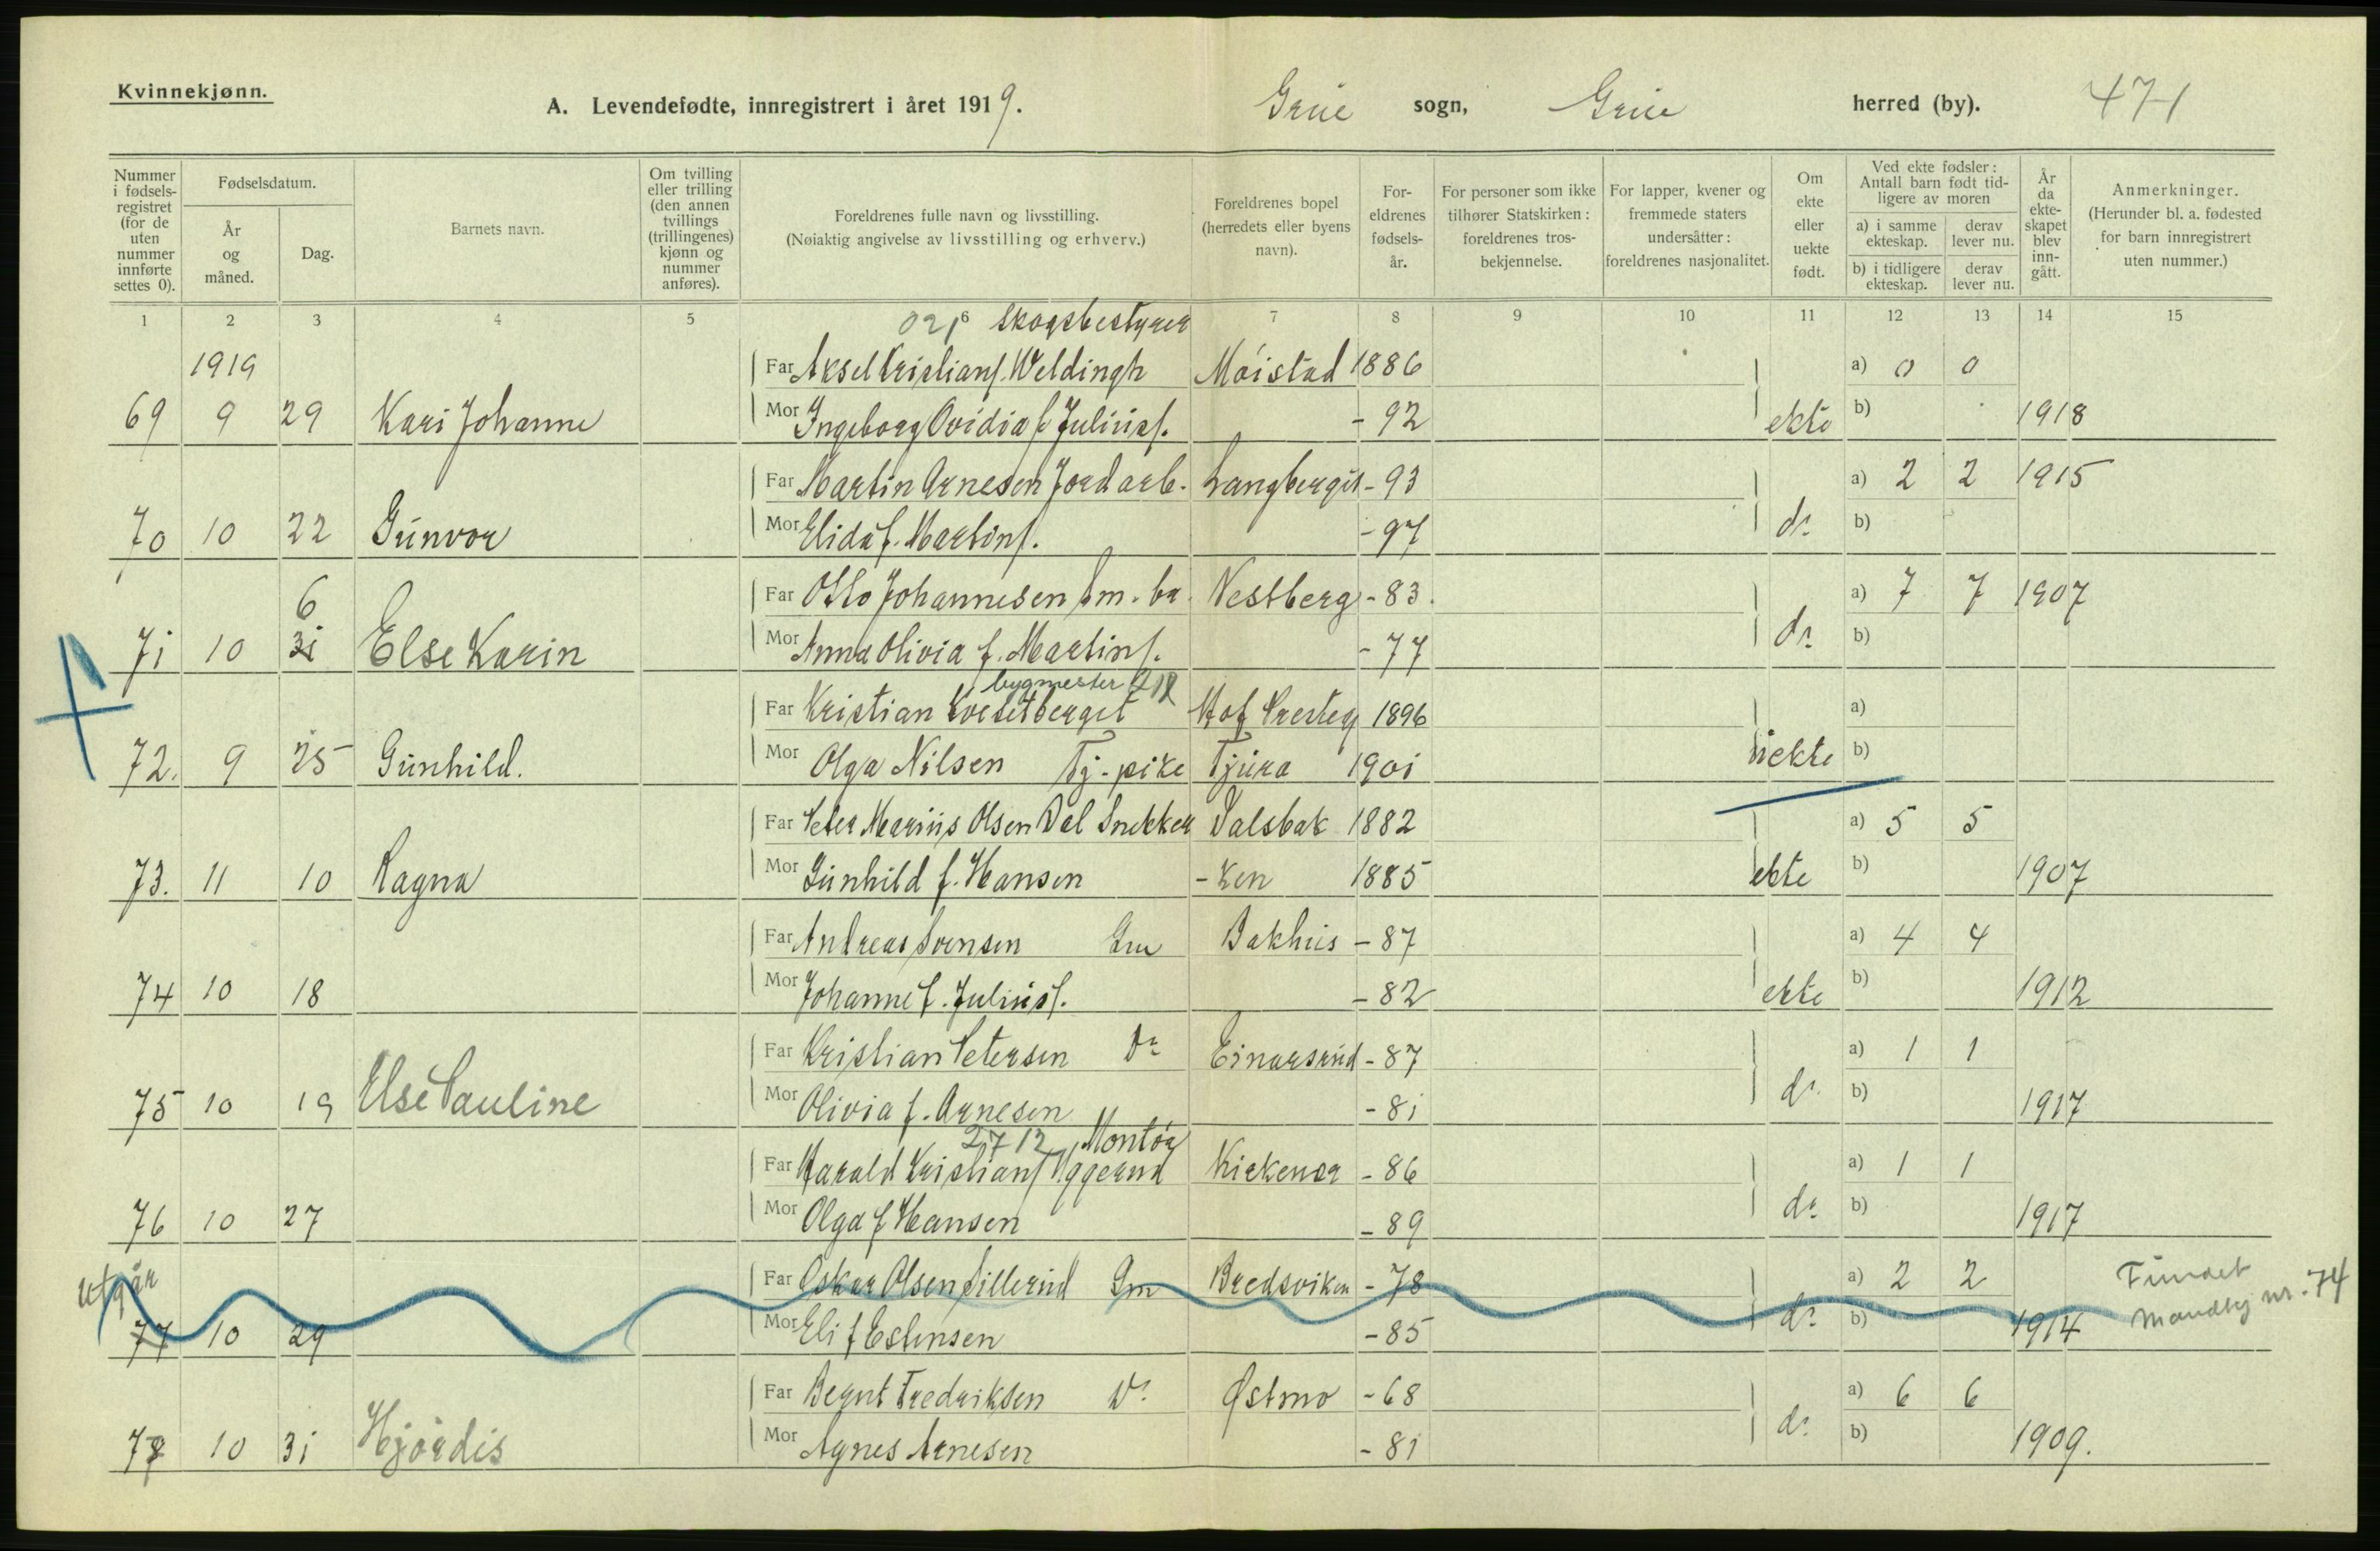 Kvinnekjønn.
A. Levendefødte, innregistrert i året 1919. Grue sogn, Grue herred (by). 471
Nummer i fødsels-registret (for de uten nummer innførte settes 0).
Fødselsdatum.
År og måned.
Dag.
Barnets navn.
Om tvilling eller trilling (den annen tvillings (trillingenes) kjønn og nummer anføres).
Foreldrenes fulle navn og livsstilling.
(Nøiaktig angivelse av livsstilling og erhverv.)
Foreldrenes bopel (herredets eller byens navn).
For-eldrenes fødsels-år.
For personer som ikke tilhører Statskirken: foreldrenes tros-bekjennelse.
For lapper, kvener og fremmede staters undersåtter: foreldrenes nasjonalitet.
Om ekte eller uekte født.
Ved ekte fødsler: Antall barn født tid-ligere av moren
a) i samme ekteskap. derav lever nu.
b) i tidligere ekteskap. derav lever nu.
År da ekte-skapet blev inn-gått.
Anmerkninger.
(Herunder bl. a. fødested for barn innregistrert uten nummer.)
1 2 3 4 5 6 7 8 9 10 11 12 13 14 15
021 Skogsbestyrer
1919 Far Aksel Kristians. Weldingh Möistad 1886 a) 0 0
69 9 29 Kari Johanne Mor Ingeborg Ovidia f Juliusf. - 92 ekte b) 1918
Far Martin Arnesen Jordarb. Langberget - 93 a) 2 2 1915
70 10 22 Gunvor Mor Elida f. Martinf. - 97 do b)
6 Far Otto Johannesen Sm. br. Nestberg - 83. a) 7 7 1907
71 10 31 Else Karin Mor Anna Olivia f. Martinf. - 77 do b)
bygmester 212
Far Kristian Kvesetberget Hof Prestegj 1896 a)
72. 9 25 Gunhild. Mor Olga Nilsen Tj-pike Tjura 1901 uekte b)
Far Peter Marius Olsen Dal Snekker Dalsbak 1882 a) 5 5
73. 11 10 Ragna Mor Gunhild f. Hansen -ken 1885 ekte b) 1907
Far Andreas Svensen Gm Bakhus - 87 a) 4 4
74 10 18 Mor Johanne f. Juliusf. - 82 ekte b) 1912
Far Kristian Petersen do Einarsrud - 87 a) 1 1
75 10 19 Else Pauline Mor Olivia f. Arnesen - 81 do b) 1917
2712 Montör
Far Harald Kristians Uggerud Kirkenær - 86 a) 1 1
76 10 27 Mor Olga f Hansen - 89 do b) 1917
Utgår Far Oskar Olsen Sillerud Gm Bredsviken - 78 a) 2 2 Fundet
77 10 29 Mor Eli f Estensen - 85 do b) 1914 Mandkj nr. 74
Far Bernt Fredriksen do Østmo - 68 a) 6 6
78 10 31 Hjördis Mor Agnes Arnesen - 81 do b) 1909.